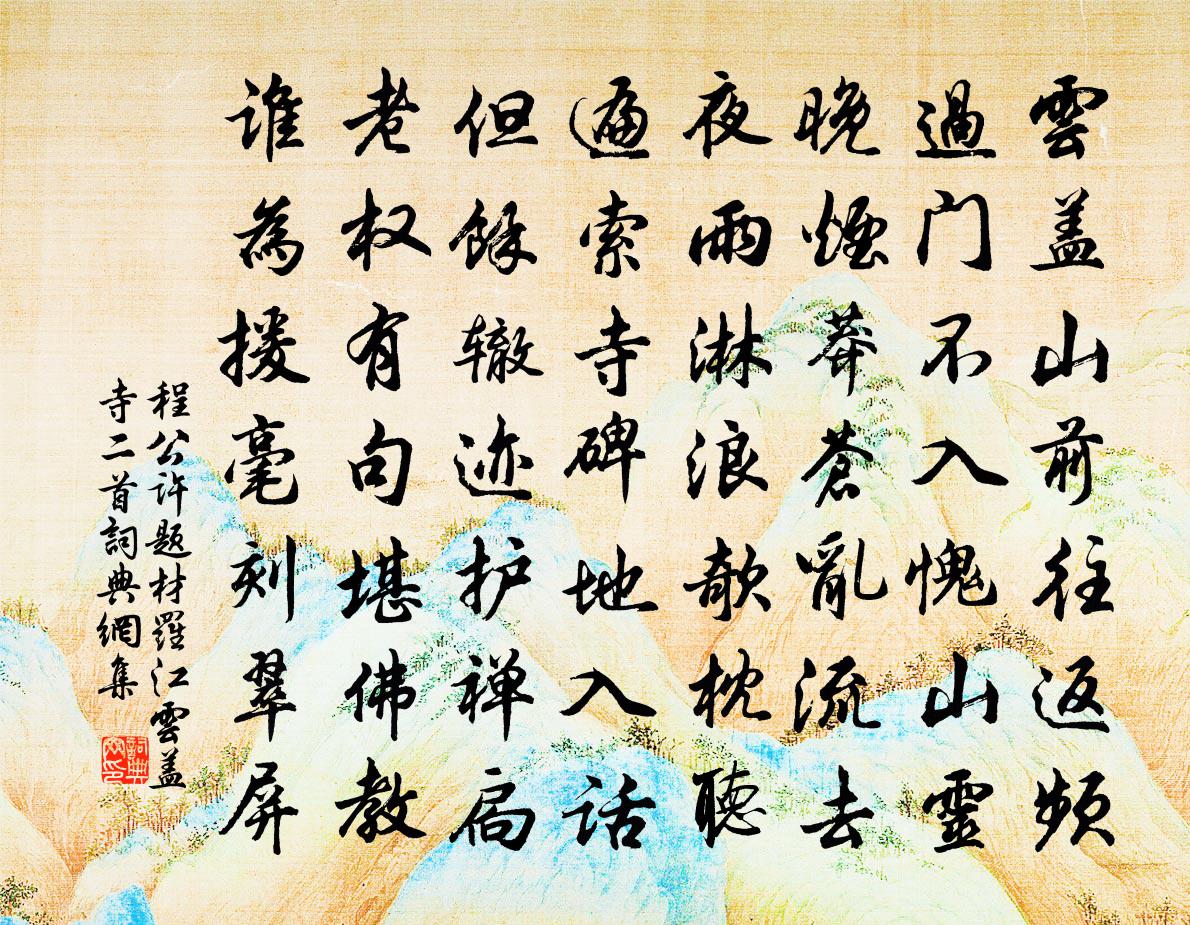 雲盖山前往返频
過门不入愧山靈
晚煙莽蒼亂流去
夜雨淋浪欹枕聽
遍索寺碑地入话
但餘辙迹护禅扃
老权有句堪佛教
谁為援毫刻翠屏
程公许题材羅江雲盖
寺二首詞典網集
詞典
网印